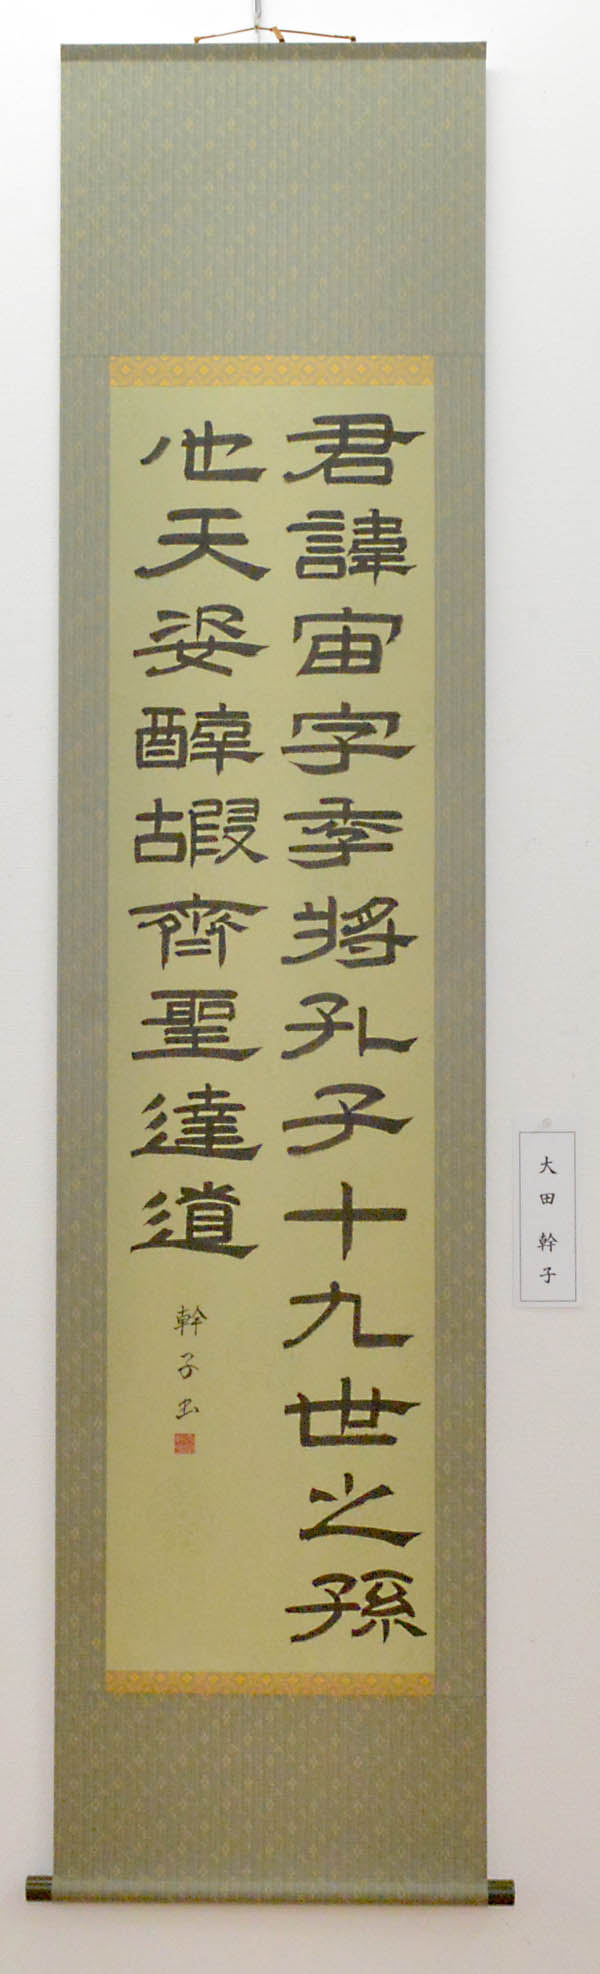 君諱宙字季將孔子十九世之孫
也天姿醇嘏齊聖達道
幹子書
大田 幹子